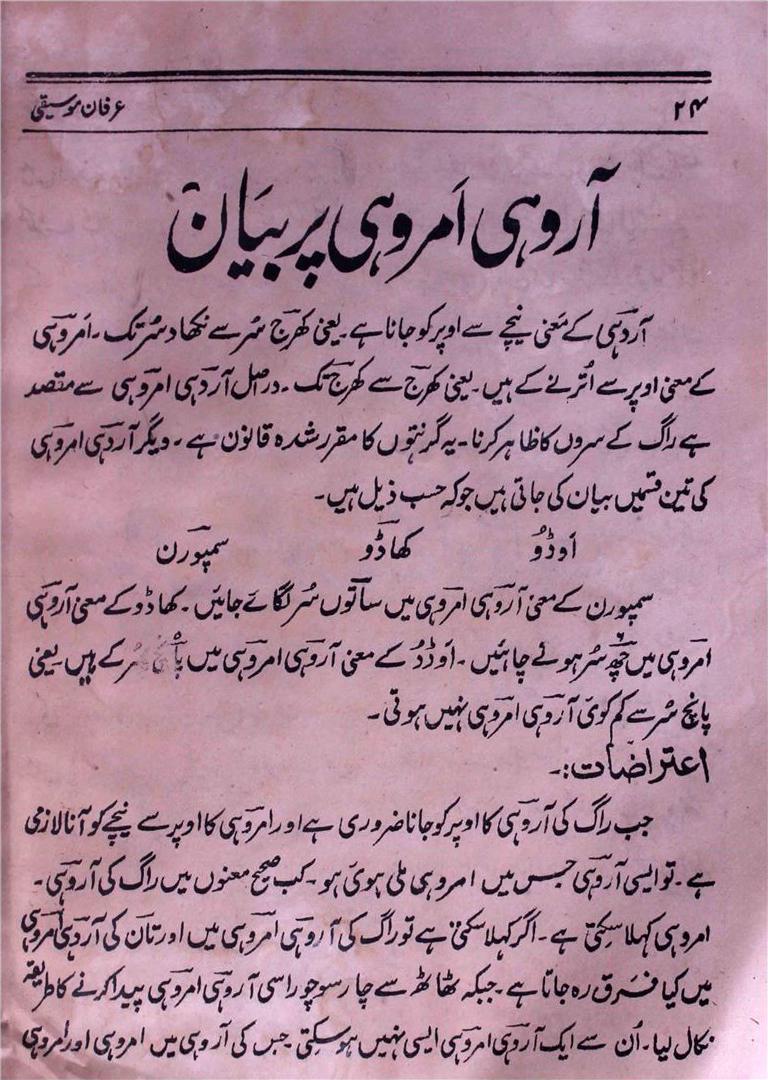 ۲۴
عرفان موسیقی
آروہی اَمروہی پر بیَان
آروہی کے مَعنی نیچے سے اوپر کو جانا ہے۔ یعنی کھرج سُر سے نکھاد سُر تک۔ اَمروہی
کے معنی اوپر سے اُترنے کے ہیں۔ یعنی کھرج سے کھرج تک۔ دراصل آروہی امروہی سے مقصد
ہے راگ کے سروں کا ظاہر کرنا۔ یہ گرنتھوں کا مقرر شدہ قانون ہے۔ دیگر آروہی امروہی
کی تین قسمیں بیان کی جاتی ہیں جو کہ حسب ذیل ہیں۔
اَوڈوُ کھاڈَو سمپورن
سمپورن کے معنیٰ آروہی امروہی میں ساتوں سُر لگائے جائیں۔ کھاڈو کے معنی آروہی
امروہی میں چھ سُر ہونے چاہئیں۔ اَوڈوُ کے معنی آروہی امروہی میں سُر کے ہیں یعنی
پانچ سُر سے کم کوئی آروہی امروہی نہیں ہوتی۔
اعتراضات:۔
جب راگ کی آروہی کا اوپر کو جانا ضروری ہے اور امروہی کا اوپر سے نیچے کو آنا لازمی
ہے۔ تو ایسی آروہی جس میں امروہی ملی ہوئی ہو۔ کب صحیح معنوں میں راگ کی آروہی۔
امروہی کہلا سکتی ہے۔ اگر کہلا سکتی ہے تو راگ کی آروہی امروہی میں اور تان کی آروہی امروہی
میں کیا فرق رہ جاتا ہے۔ جبکہ ٹھاٹھ سے چار سو چوراسی آروہی امروہی پیدا کرنے کا طریقہ
نکال لیا۔ اُن سے ایک آروہی امروہی ایسی نہیں ہو سکتی جس کی آروہی میں امروہی اور امروہی